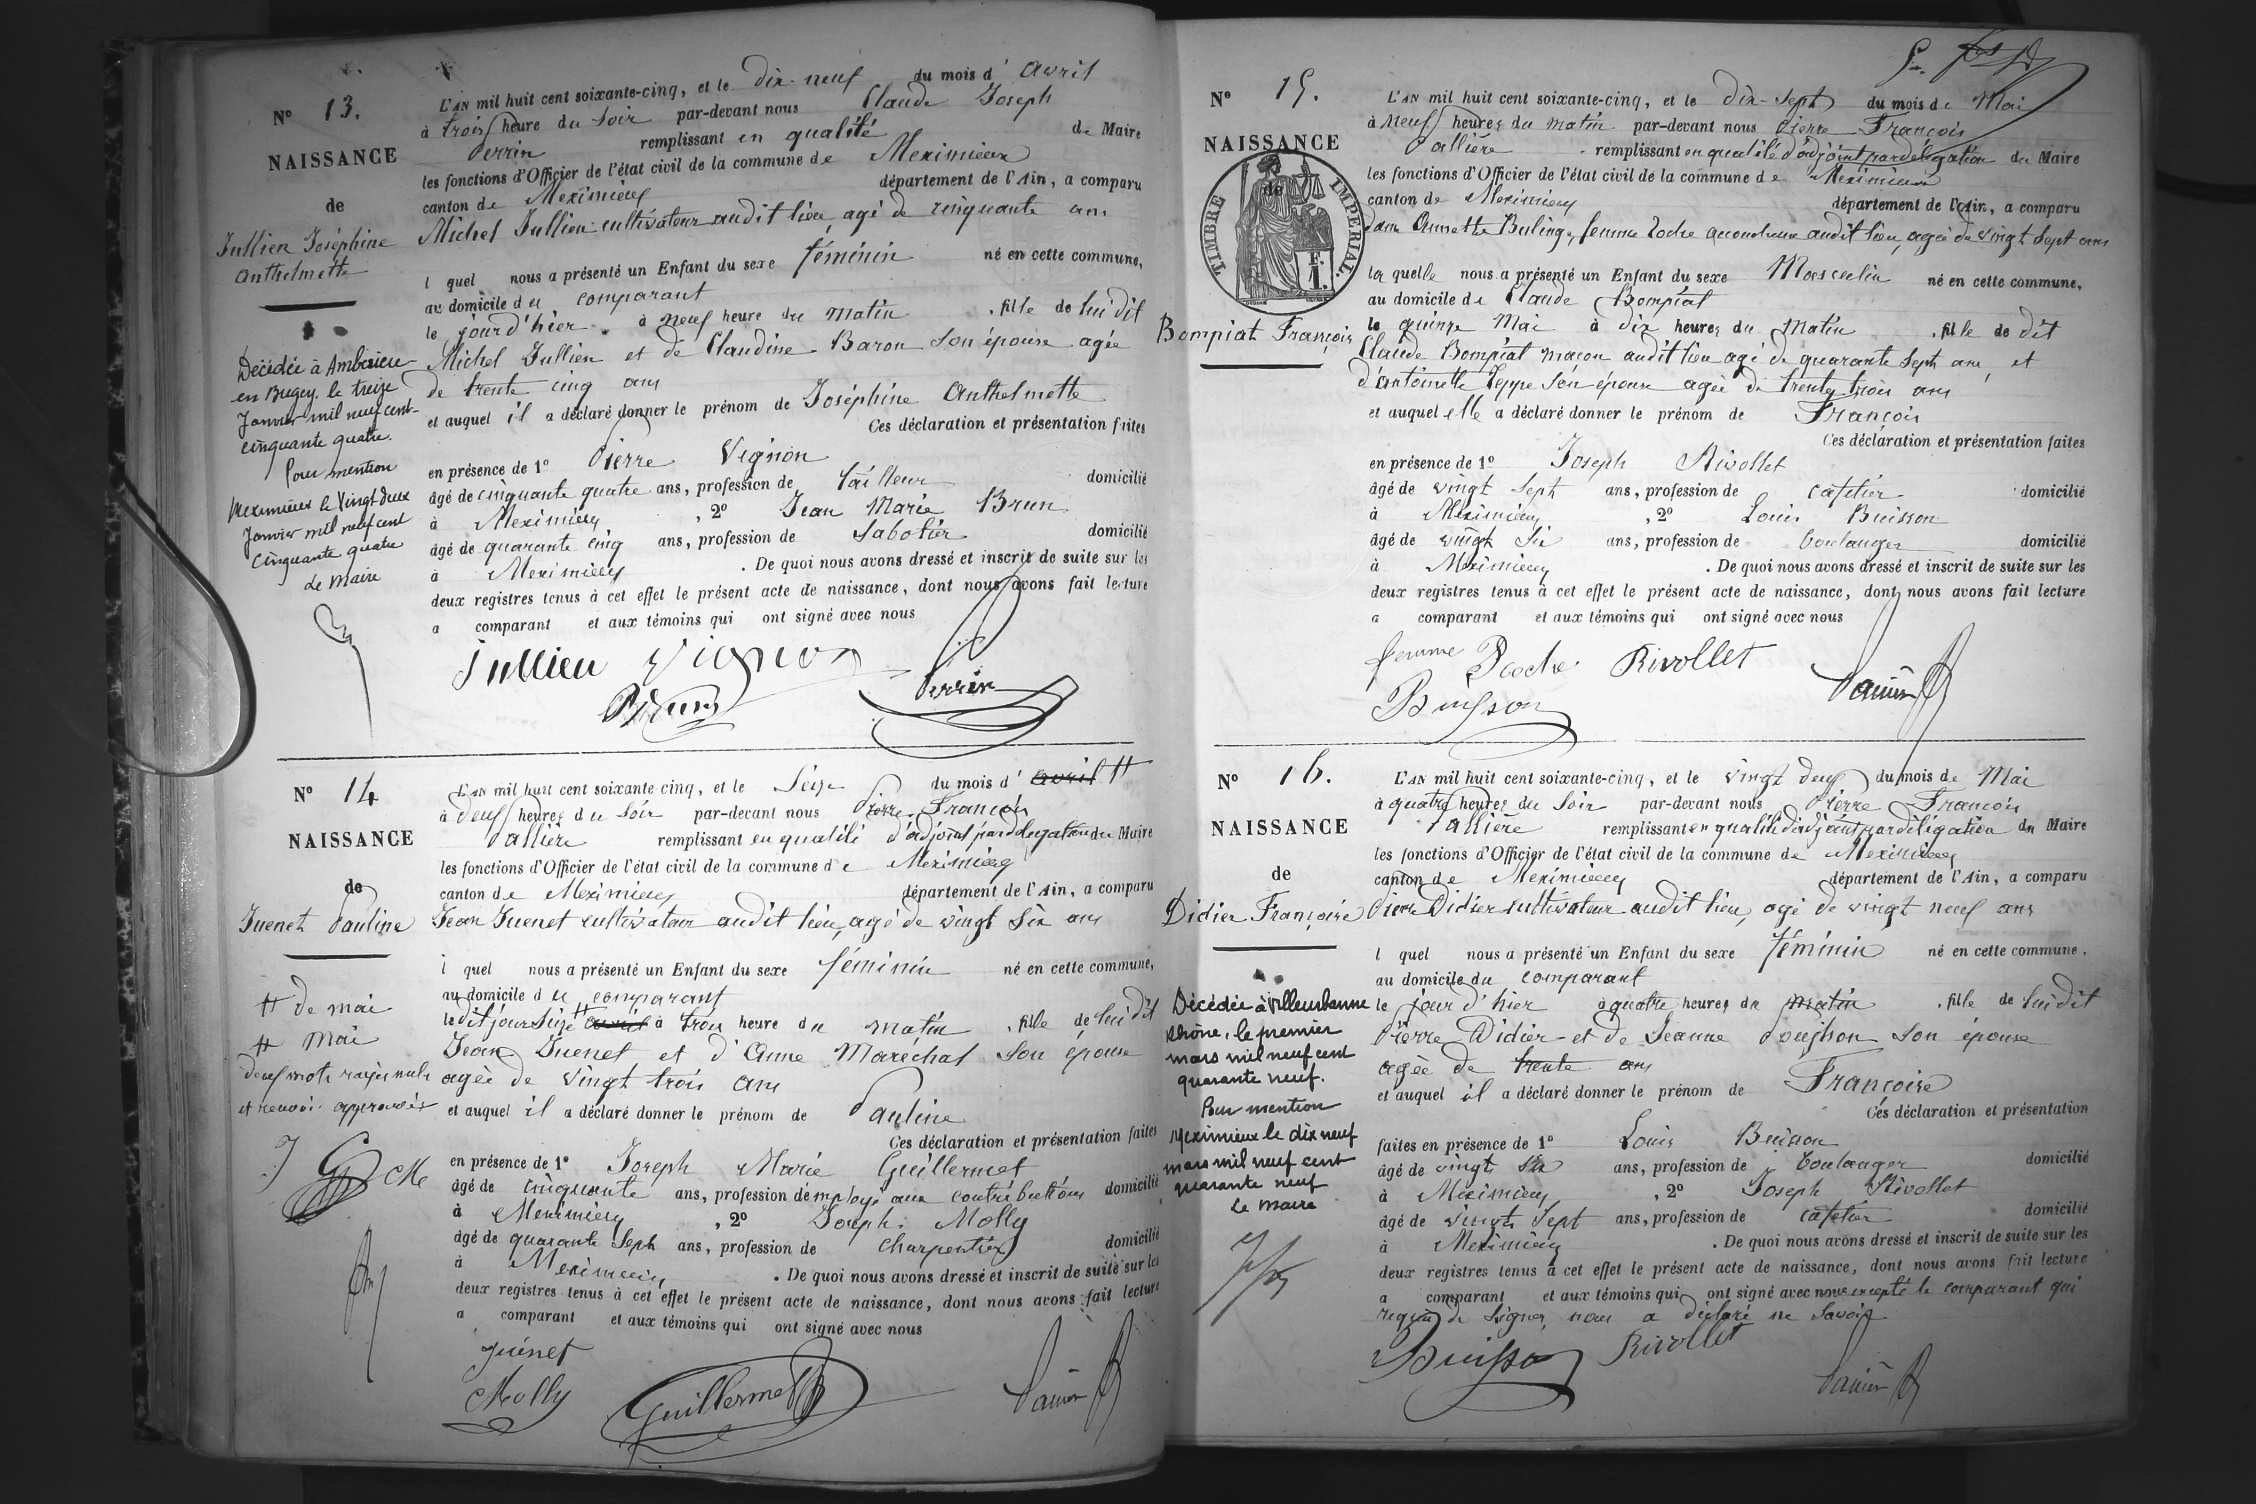 N° 13.
NAISSANCE
de
Jullien Joséphine
Anthelmette
Décédée à Ambérieu
en Bugey, le treize
Janvier mil neuf cent-
cinquante quatre.
Pour mention
Meximieux le Vingt deux
Janvier mil neuf cent
cinquante quatre
Le Maire
L'AN mil huit cent soixante-cinq, et le dix-neuf du mois d'Avril
à trois heure du soir par-devant nous Claude Joseph
Perrin remplissant en qualité de Maire
les fonctions d'Officier de l'état civil de la commune de Meximieux
canton de Meximieux département de l'Ain, a comparu
Michel Jullien cultivateur audit lieu, agé de cinquante ans
l quel nous a présenté un Enfant du sexe féminin né en cette commune,
au domicile du comparant
le jour d'hier à neuf heure du matin , fille de lui dit
Michel Jullien et de Claudine Baron son épouse agée
de trente cinq ans
et auquel il a déclaré donner le prénom de Joséphine Anthelmette
Ces déclaration et présentation faites
en présence de 1° Pierre Vignon
âgé de cinquante quatre ans, profession de tailleur domicilié
à Meximieux , 2° Jean Marie Brun
âgé de quarante cinq ans, profession de sabotier domicilié
à Meximieux . De quoi nous avons dressé et inscrit de suite sur les
deux registres tenus à cet effet le présent acte de naissance, dont nous avons fait lecture
a comparant et aux témoins qui ont signé avec nous
Jullien Vignon
Brun Perrin
N° 14
NAISSANCE
de
Juenet Pauline
# de mai
# mai
deux mots rayés nuls
et renvois approuvés
J G CM
L'AN mil huit cent soixante cinq, et le seize du mois d'avril #
à deux heures du soir par-devant nous Pierre François
Pallière remplissant en qualité d'adjoint par délégation du Maire
les fonctions d'Officier de l'état civil de la commune de Meximieux
canton de Meximieux département de l'Ain, a comparu
Jean Juenet cultivateur audit lieu, agé de vingt six ans
l quel nous a présenté un Enfant du sexe féminin né en cette commune,
au domicile du comparant
le dit jour seize # avril à trois heure du matin , fille de lui dit
Jean Juenet et d'Anne Maréchal son épouse
agée de vingt trois ans
et auquel il a déclaré donner le prénom de Pauline
Ces déclaration et présentation faites
en présence de 1° Joseph Marie Guillermet
âgé de cinquante ans, profession d'employé aux contributions domicilié
à Meximieux , 2° Joseph Molly
âgé de quarante sept ans, profession de charpentier domicilié
à Meximieux . De quoi nous avons dressé et inscrit de suite sur les
deux registres tenus à cet effet le présent acte de naissance, dont nous avons fait lecture
a comparant et aux témoins qui ont signé avec nous
Juénet
Molly Guillermet
N° 15.
NAISSANCE
de
TIMBRE IMPÉRIAL
F. 1.
Bompiat François
L'AN mil huit cent soixante-cinq, et le dix-sept du mois de Mai
à neuf heures du matin par-devant nous Pierre François
Pallière remplissant en qualité d'adjoint par délégation du Maire
les fonctions d'Officier de l'état civil de la commune de Meximieux
canton de Meximieux département de l'Ain, a comparu
dame Annette Bulinge, femme Roche accoucheuse audit lieu, agée de vingt sept ans
la quelle nous a présenté un Enfant du sexe Masculin né en cette commune,
au domicile de Claude Bompiat
le quinze Mai à dix heures du matin , fil le de dit
Claude Bompiat maçon audit lieu agé de quarante sept ans, et
d'antoinette Teppe son épouse agée de trente trois ans
et auquel elle a déclaré donner le prénom de François
Ces déclaration et présentation faites
en présence de 1° Joseph Rivollet
âgé de vingt sept ans, profession de cafetier domicilié
à Meximieux , 2° Louis Buisson
âgé de vingt six ans, profession de boulanger domicilié
à Meximieux . De quoi nous avons dressé et inscrit de suite sur les
deux registres tenus à cet effet le présent acte de naissance, dont nous avons fait lecture
a comparant et aux témoins qui ont signé avec nous
femme Roche Rivollet
Buisson
N° 16.
NAISSANCE
de
Didier Françoise
Décédée à Villeurbanne
Rhône, le premier
mars mil neuf cent
quarante neuf.
Pour mention
Meximieux le dix neuf
mars mil neuf cent
quarante neuf
Le Maire
L'AN mil huit cent soixante-cinq, et le vingt deux du mois de Mai
à quatre heures du soir par-devant nous Pierre François
Pallière remplissant en qualité d'adjoint par délégation du Maire
les fonctions d'Officier de l'état civil de la commune de Meximieux
canton de Meximieux département de l'Ain, a comparu
Pierre Didier cultivateur audit lieu, agé de vingt neuf ans
l quel nous a présenté un Enfant du sexe féminin né en cette commune.
au domicile du comparant
le jour d'hier à quatre heures du matin , fille de lui dit
Pierre Didier et de Jeanne son épouse
agée de trente ans
et auquel il a déclaré donner le prénom de Françoise
Ces déclaration et présentation
faites en présence de 1° Louis Buisson
âgé de vingt six ans, profession de boulanger domicilié
à Meximieux , 2° Joseph Rivollet
âgé de vingt sept ans, profession de cafetier domicilié
à Meximieux . De quoi nous avons dressé et inscrit de suite sur les
deux registres tenus à cet effet le présent acte de naissance, dont nous avons fait lecture
a comparant et aux témoins qui ont signé avec nous excepté le comparant qui
requis de signer, nous a déclaré ne savoir
Buisson Rivollet